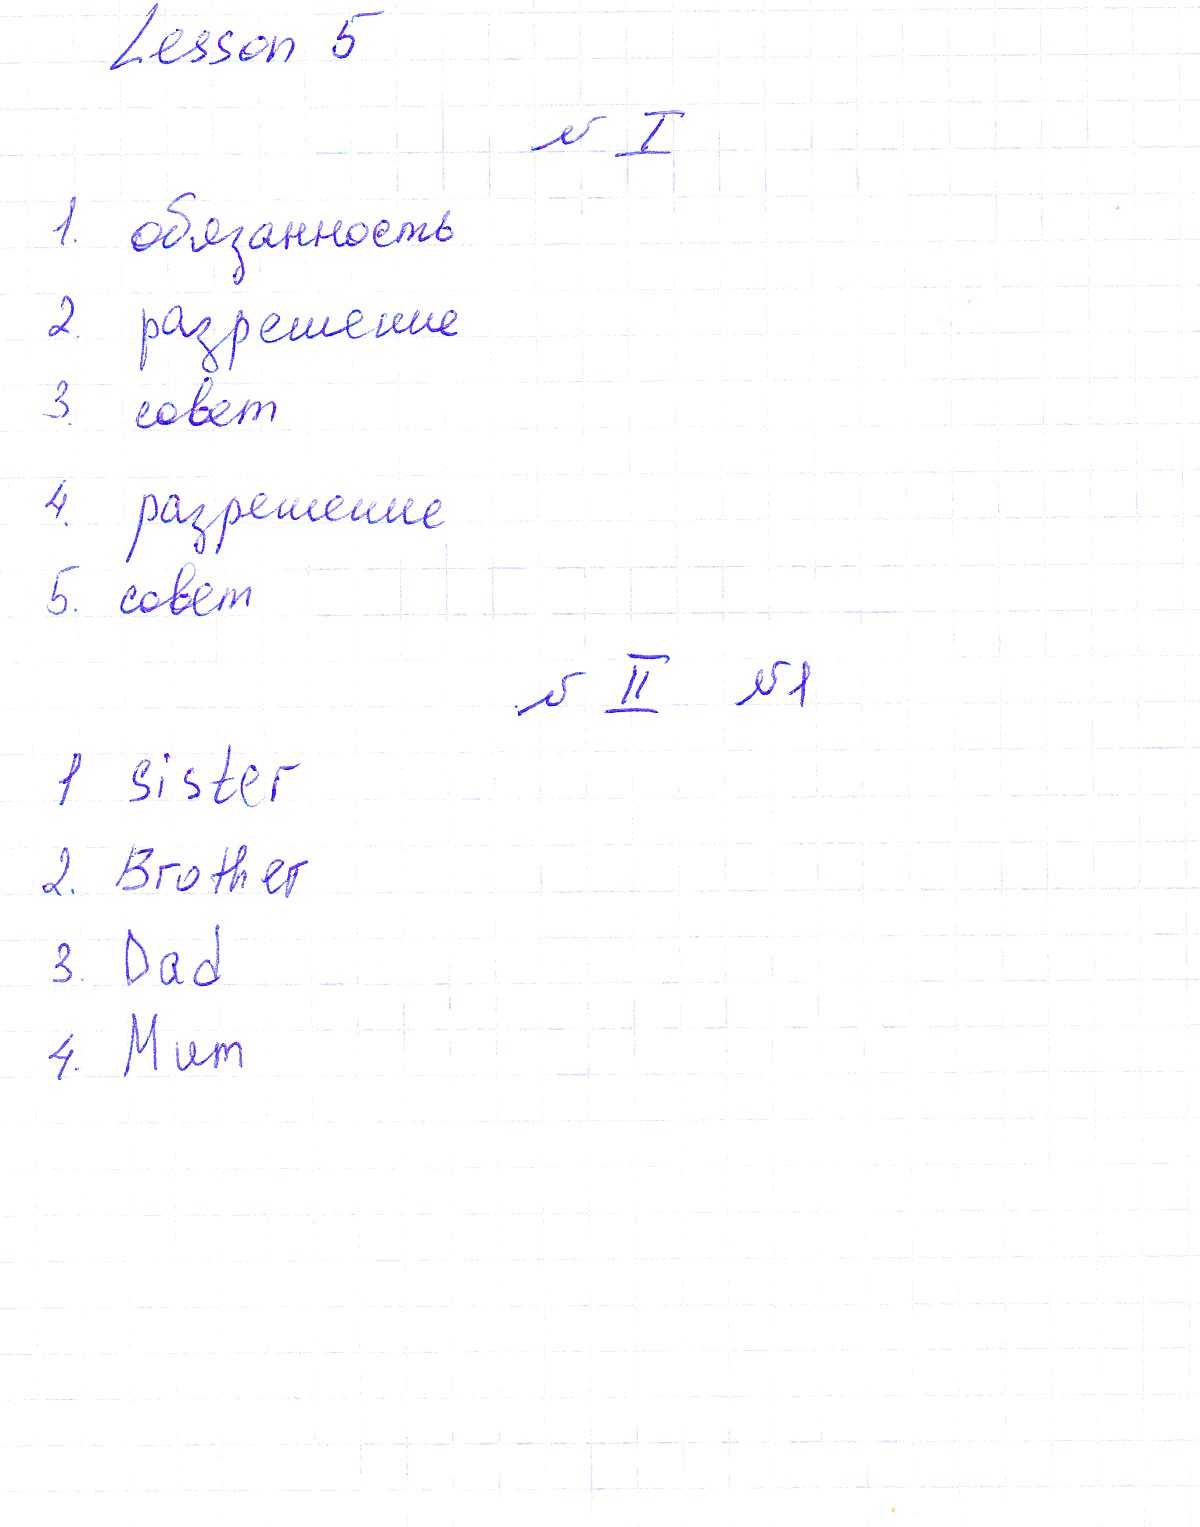 Lesson 5
№ I
1. обязанность
2. разрешение
3. совет
4. разрешение
5. совет
№ II №1
1 sister
2. Brother
3. Dad
4. Mum